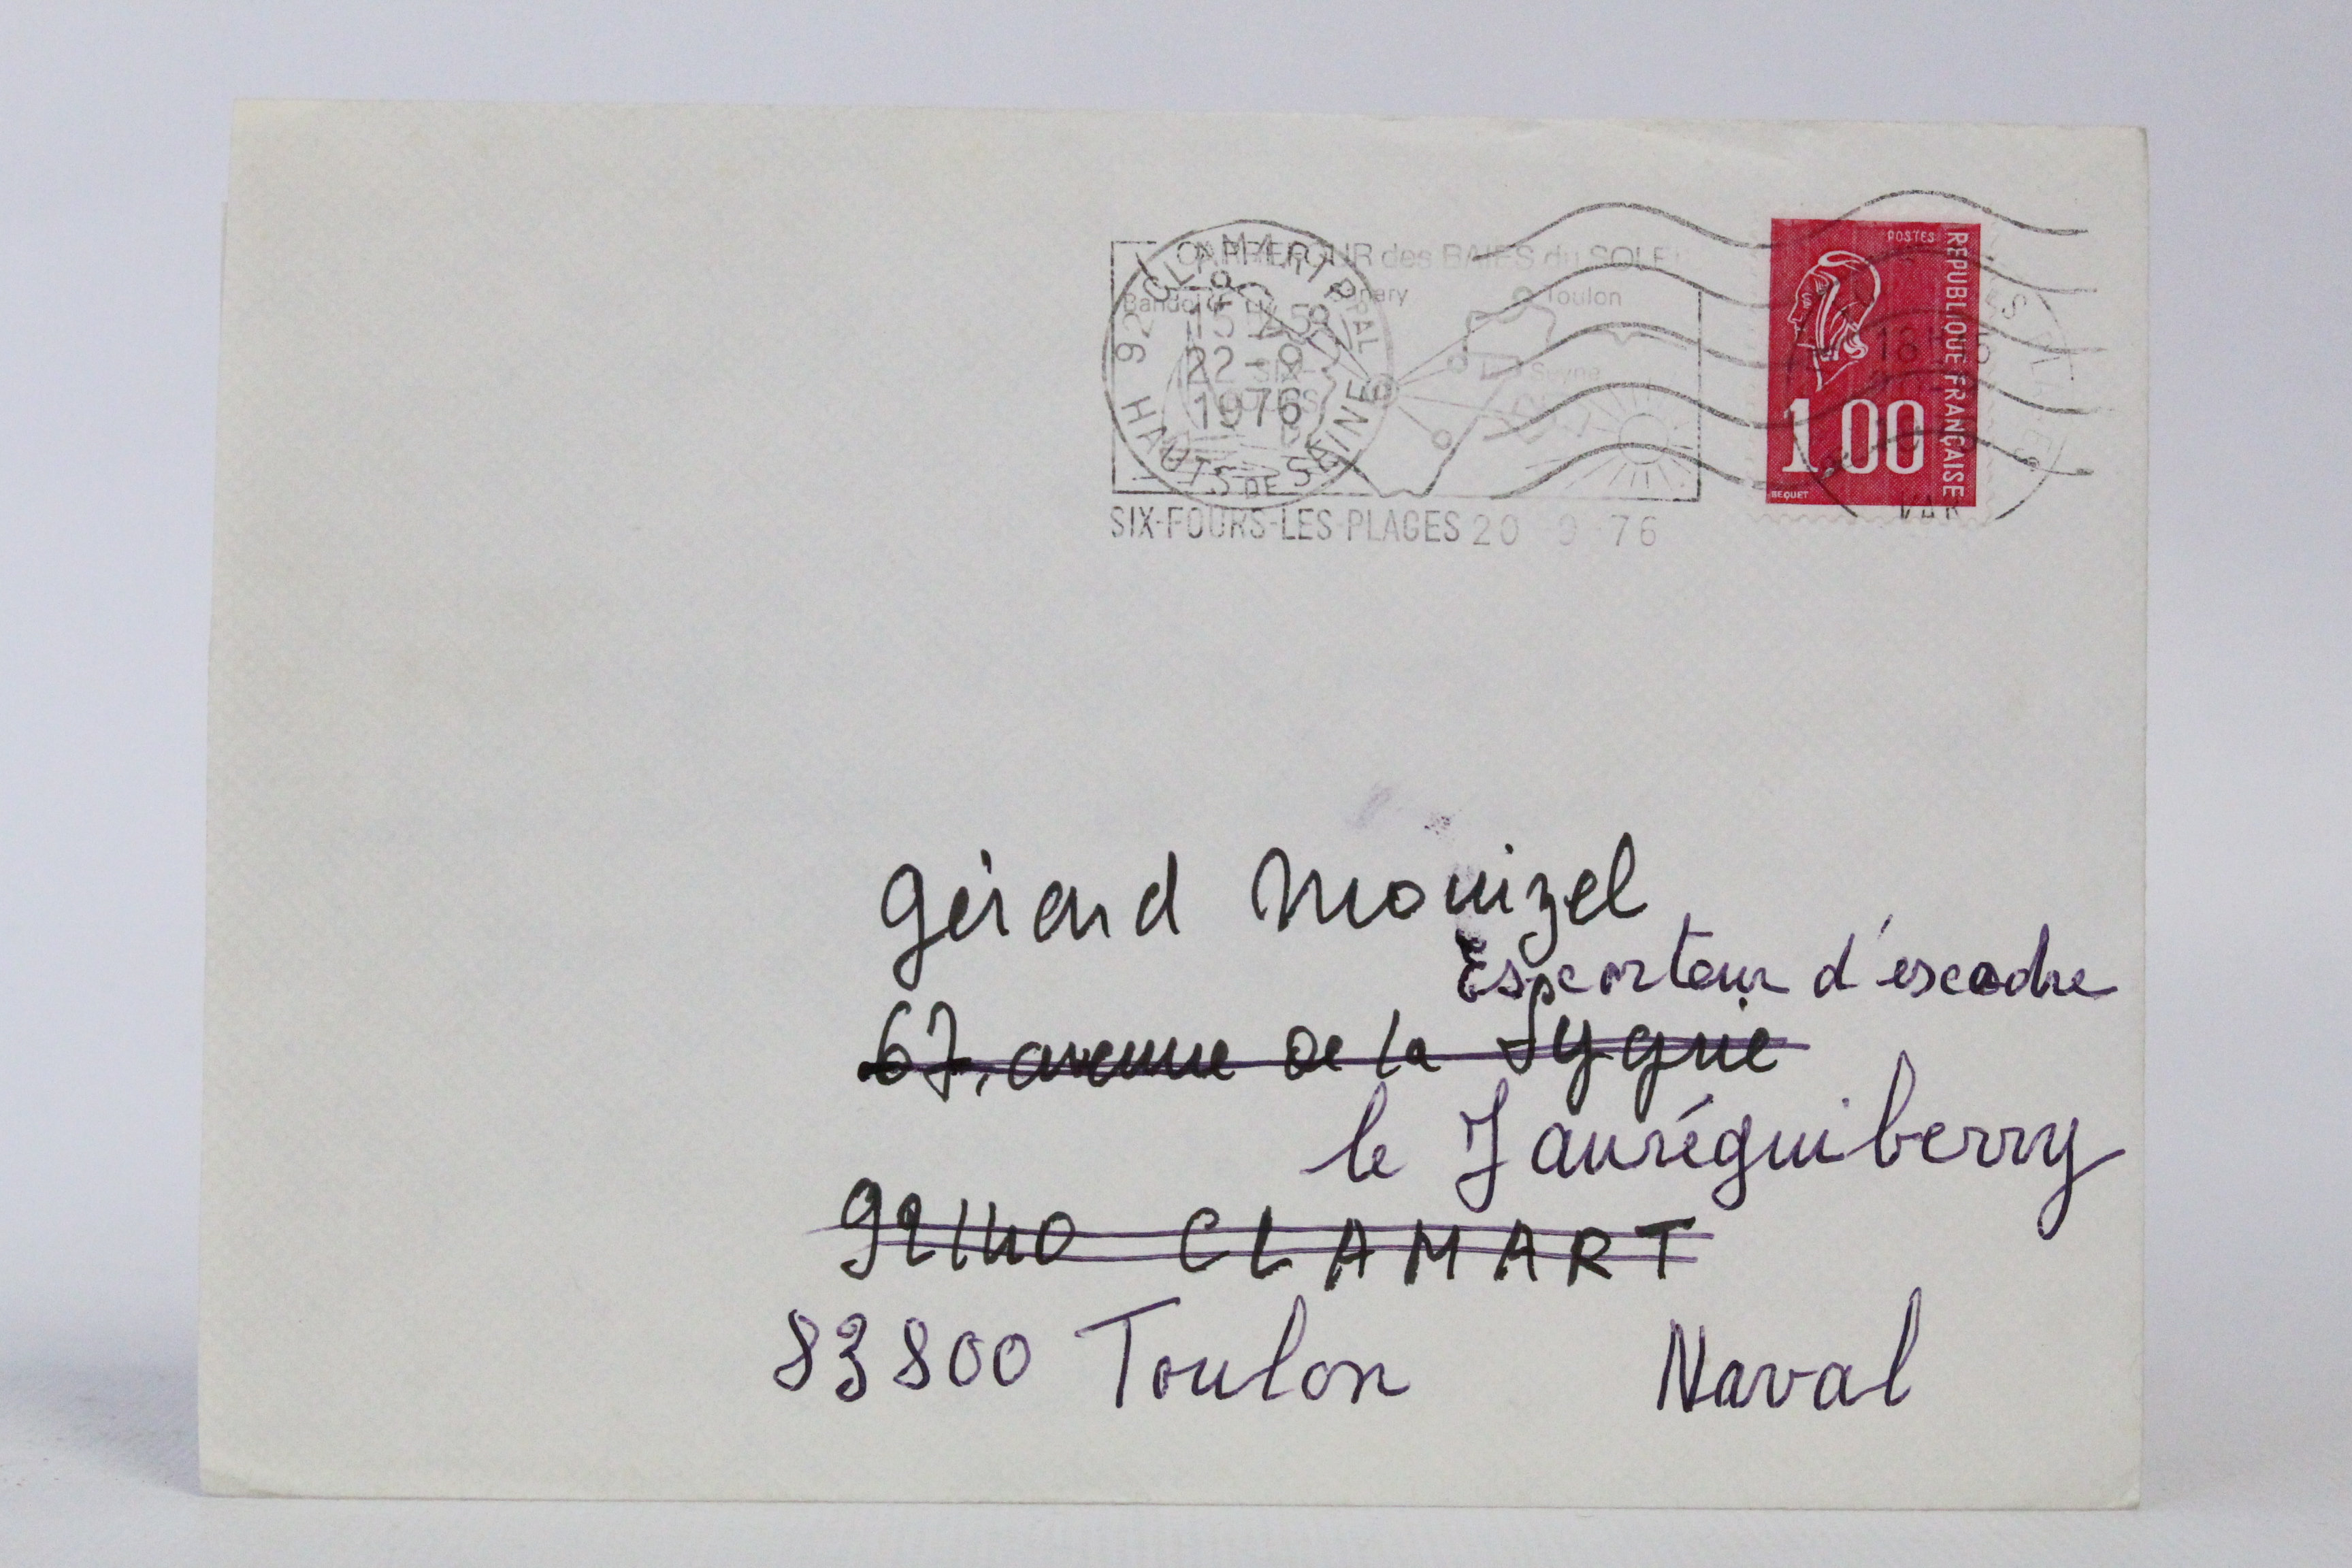 CARREFOUR des BAIES du SOLEIL
Bandol Sanary Toulon
La Seyne
SIX-FOURS
SIX-FOURS-LES-PLAGES 20 9 76
92 CLAMART PPAL
15 H 45
22 - 9
1976
HAUTS DE SEINE
POSTES
REPUBLIQUE FRANÇAISE
1.00
BEQUET
VAR
Gérard Mouizel
Escorteur d'éscadre
67, avenue de la Sygrie
le Jauréguiberry
92140 CLAMART
83800 Toulon Naval